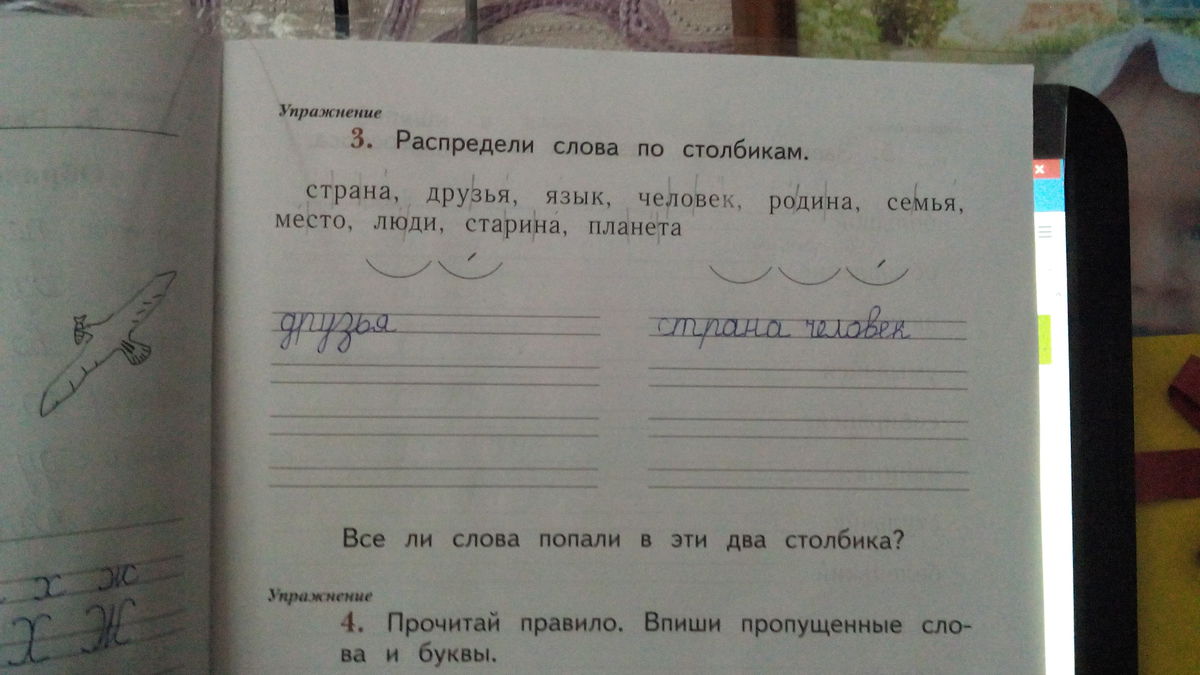 Упражнение
3. Распредели слова по столбикам.
страна, друзья, язык, человек, родина, семья,
место, люди, старина, планета
друзья
страна человек
Все ли слова попали в эти два столбика?
Упражнение
4. Прочитай правило. Впиши пропущенные сло-
ва и буквы.
х ж
Х Ж